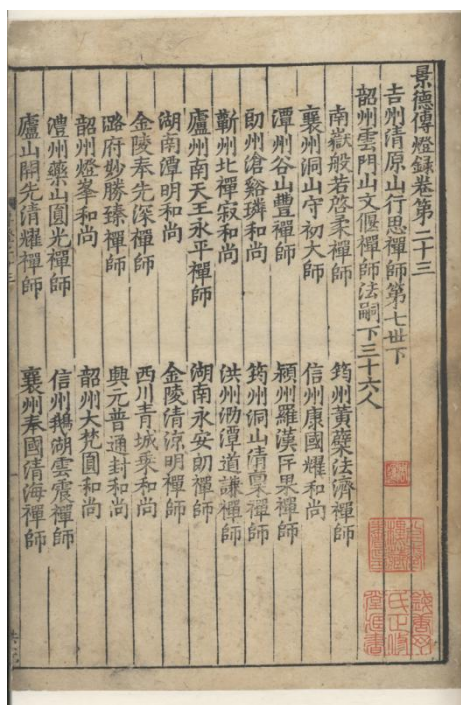 景德傳燈録卷第二十三
吉州清原山行思禪師第七世下
韶州雲門山文偃禪師法嗣下三十六人
南嶽般若啓柔禪師 筠州黃蘗法濟禪師
襄州洞山守初大師 信州康國耀和尚
潭州谷山豐禪師 潁州羅漢匡果禪師
朗州滄谿璘和尚 筠州洞山清稟禪師
蘄州北禪寂和尚 洪州泐潭道謙禪師
廬州南天王永平禪師 湖南永安朗禪師
湖南潭明和尚 金陵清涼明禪師
金陵奉先深禪師 西川青城乘和尚
潞府妙勝臻禪師 興元普通封和尚
韶州燈峯和尚 韶州大梵圓和尚
澧州藥山圓光禪師 信州鵝湖雲震禪師
廬山開先清耀禪師 襄州奉國清海禪師